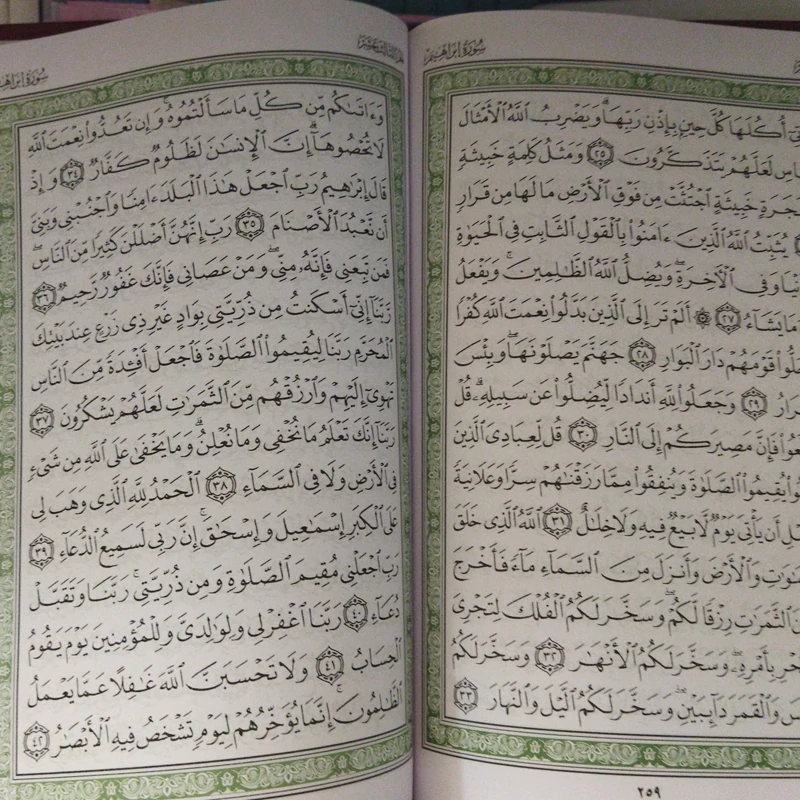 سُورَةُ إِبْرَاهِيم
أُكُلَهَا كُلَّ حِينٍۭ بِإِذْنِ رَبِّهَاۗ وَيَضْرِبُ ٱللَّهُ ٱلْأَمْثَالَ
لَعَلَّهُمْ يَتَذَكَّرُونَ ٢٥ وَمَثَلُ كَلِمَةٍ خَبِيثَةٍ
خَبِيثَةٍ ٱجْتُثَّتْ مِن فَوْقِ ٱلْأَرْضِ مَا لَهَا مِن قَرَارٍ
يُثَبِّتُ ٱللَّهُ ٱلَّذِينَ ءَامَنُوا۟ بِٱلْقَوْلِ ٱلثَّابِتِ فِى ٱلْحَيَوٰةِ
وَفِى ٱلْـَٔاخِرَةِۖ وَيُضِلُّ ٱللَّهُ ٱلظَّٰلِمِينَۚ وَيَفْعَلُ
مَا يَشَآءُ ٢٧ ۞ أَلَمْ تَرَ إِلَى ٱلَّذِينَ بَدَّلُوا۟ نِعْمَتَ ٱللَّهِ كُفْرًا
قَوْمَهُمْ دَارَ ٱلْبَوَارِ ٢٨ جَهَنَّمَ يَصْلَوْنَهَاۖ وَبِئْسَ
٢٩ وَجَعَلُوا۟ لِلَّهِ أَندَادًا لِّيُضِلُّوا۟ عَن سَبِيلِهِۦۗ قُلْ
فَإِنَّ مَصِيرَكُمْ إِلَى ٱلنَّارِ ٣٠ قُل لِّعِبَادِىَ ٱلَّذِينَ
يُقِيمُوا۟ ٱلصَّلَوٰةَ وَيُنفِقُوا۟ مِمَّا رَزَقْنَٰهُمْ سِرًّا وَعَلَانِيَةً
أَن يَأْتِىَ يَوْمٌ لَّا بَيْعٌ فِيهِ وَلَا خِلَٰلٌ ٣١ ٱللَّهُ ٱلَّذِى خَلَقَ
وَٱلْأَرْضَ وَأَنزَلَ مِنَ ٱلسَّمَآءِ مَآءً فَأَخْرَجَ
ٱلثَّمَرَٰتِ رِزْقًا لَّكُمْۖ وَسَخَّرَ لَكُمُ ٱلْفُلْكَ لِتَجْرِىَ
بِأَمْرِهِۦۖ وَسَخَّرَ لَكُمُ ٱلْأَنْهَٰرَ ٣٢ وَسَخَّرَ لَكُمُ
وَٱلْقَمَرَ دَآئِبَيْنِۖ وَسَخَّرَ لَكُمُ ٱلَّيْلَ وَٱلنَّهَارَ ٣٣
٢٥٩
الجزء الثالث عشر
سُورَةُ
وَءَاتَىٰكُم مِّن كُلِّ مَا سَأَلْتُمُوهُۚ وَإِن تَعُدُّوا۟ نِعْمَتَ ٱللَّهِ
لَا تُحْصُوهَآۗ إِنَّ ٱلْإِنسَٰنَ لَظَلُومٌ كَفَّارٌ ٣٤ وَإِذْ
قَالَ إِبْرَٰهِيمُ رَبِّ ٱجْعَلْ هَٰذَا ٱلْبَلَدَ ءَامِنًا وَٱجْنُبْنِى وَبَنِىَّ
أَن نَّعْبُدَ ٱلْأَصْنَامَ ٣٥ رَبِّ إِنَّهُنَّ أَضْلَلْنَ كَثِيرًا مِّنَ ٱلنَّاسِۖ
فَمَن تَبِعَنِى فَإِنَّهُۥ مِنِّىۖ وَمَنْ عَصَانِى فَإِنَّكَ غَفُورٌ رَّحِيمٌ ٣٦
رَّبَّنَآ إِنِّىٓ أَسْكَنتُ مِن ذُرِّيَّتِى بِوَادٍ غَيْرِ ذِى زَرْعٍ عِندَ بَيْتِكَ
ٱلْمُحَرَّمِ رَبَّنَا لِيُقِيمُوا۟ ٱلصَّلَوٰةَ فَٱجْعَلْ أَفْـِٔدَةً مِّنَ ٱلنَّاسِ
تَهْوِىٓ إِلَيْهِمْ وَٱرْزُقْهُم مِّنَ ٱلثَّمَرَٰتِ لَعَلَّهُمْ يَشْكُرُونَ ٣٧
رَبَّنَآ إِنَّكَ تَعْلَمُ مَا نُخْفِى وَمَا نُعْلِنُۗ وَمَا يَخْفَىٰ عَلَى ٱللَّهِ مِن شَىْءٍ
فِى ٱلْأَرْضِ وَلَا فِى ٱلسَّمَآءِ ٣٨ ٱلْحَمْدُ لِلَّهِ ٱلَّذِى وَهَبَ لِى
عَلَى ٱلْكِبَرِ إِسْمَٰعِيلَ وَإِسْحَٰقَۚ إِنَّ رَبِّى لَسَمِيعُ ٱلدُّعَآءِ ٣٩
رَبِّ ٱجْعَلْنِى مُقِيمَ ٱلصَّلَوٰةِ وَمِن ذُرِّيَّتِىۚ رَبَّنَا وَتَقَبَّلْ
دُعَآءِ ٤٠ رَبَّنَا ٱغْفِرْ لِى وَلِوَٰلِدَىَّ وَلِلْمُؤْمِنِينَ يَوْمَ يَقُومُ
ٱلْحِسَابُ ٤١ وَلَا تَحْسَبَنَّ ٱللَّهَ غَٰفِلًا عَمَّا يَعْمَلُ
ٱلظَّٰلِمُونَۚ إِنَّمَا يُؤَخِّرُهُمْ لِيَوْمٍ تَشْخَصُ فِيهِ ٱلْأَبْصَٰرُ ٤٢